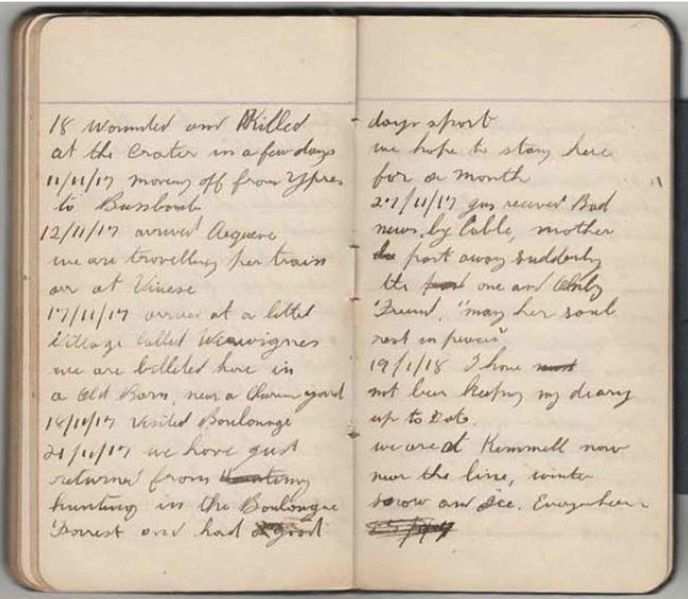 18 Wounded and Killed
at the Crater in a few days
11/11/17 moving off from Ypres
to Bussboub
12/11/17 arrived Aequere
we are travelling per train
arr at Vinese
17/11/17 arrived at a littel
village called Werwignes
we are billeted here in
a Old Barn, near a Church yard
18/11/17 visited Boulounge
21/11/17 we have just
returned from
hunting in the Boulongue
Forrest and had a good
days sport
we hope to stay here
for a month
27/11/17 jus received Bad
news, by Cable, mother
past away suddenly
the one and Only
Friend, "may her soul
rest in peace"
19/1/18 I have
not been keeping my diary
up to Date.
we are at Kemmell now
near the line, winter
snow and Ice. Everywhere